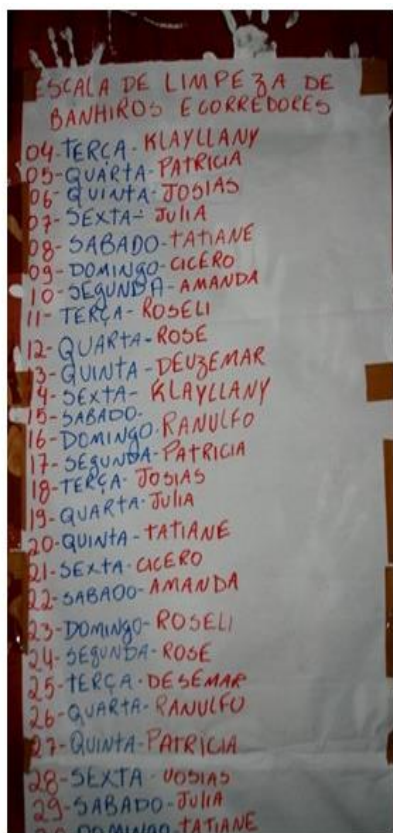 ESCALA DE LIMPEZA DE
BANHIROS E CORREDORES
04-TERÇA-KLAYLLANY
05-QUARTA-PATRICIA
06-QUINTA-JOSIAS
07-SEXTA-JULIA
08-SABADO-TATIANE
09-DOMINGO-CICERO
10-SEGUNDA-AMANDA
11-TERÇA-ROSELI
12-QUARTA-ROSE
13-QUINTA-DEUZEMAR
14-SEXTA-KLAYLLANY
15-SABADO-
16-DOMINGO-RANULFO
17-SEGUNDA-PATRICIA
18-TERÇA-JOSIAS
19-QUARTA-JULIA
20-QUINTA-TATIANE
21-SEXTA-CICERO
22-SABADO-AMANDA
23-DOMINGO-ROSELI
24-SEGUNDA-ROSE
25-TERÇA-DESEMAR
26-QUARTA-RANULFO
27-QUINTA-PATRICIA
28-SEXTA-JOSIAS
29-SABADO-JULIA
DOMINGO-TATIANE